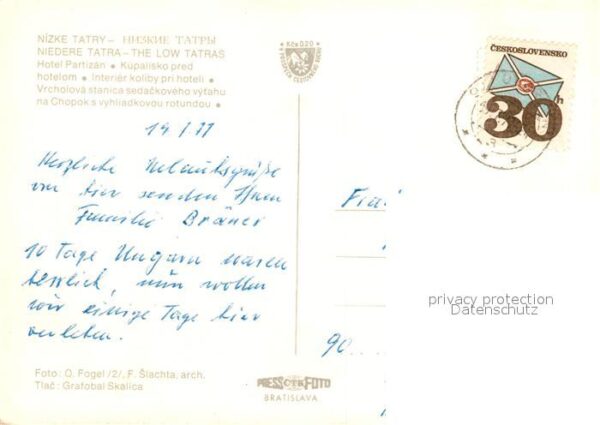 NÍZKE TATRY – НИЗКИЕ ТАТРЫ
NIEDERE TATRA – THE LOW TATRAS
Hotel Partizán • Kúpalisko pred
hotelom • Interiér koliby pri hoteli •
Vrcholová stanica sedačkového výťahu
na Chopok s vyhliadkovou rotundou •
Kčs 0,20
ČESKOSLOVENSKO
30h
Herzliche Urlaubsgrüße
von hier senden Ihnen
Familie
10 Tage Ungarn waren
herrlich, nun wollen
wir einige Tage hier
verleben.
90
privacy protection
Datenschutz
Foto: O. Fogel /2/, F. Šlachta, arch.
Tlač: Grafobal Skalica
PRESSFOTO
BRATISLAVA